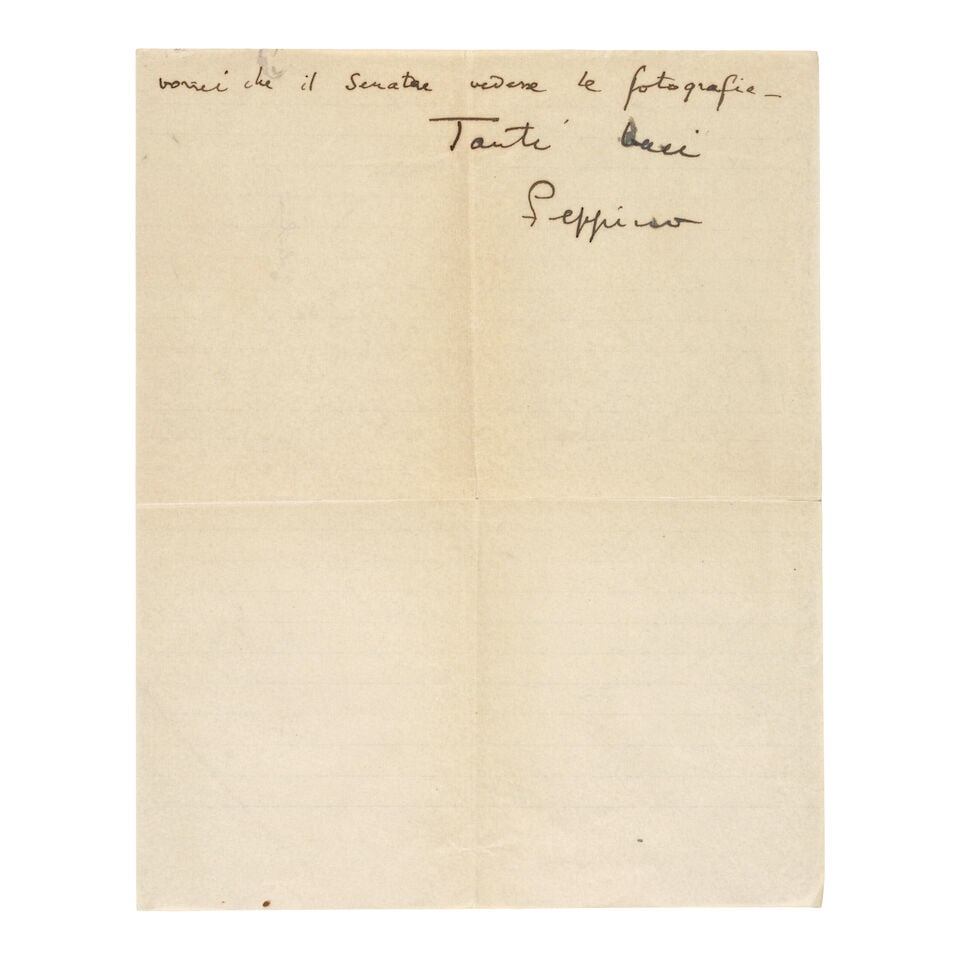 vorrei che il Senatore vedesse le fotografie_
Tanti baci
Peppino